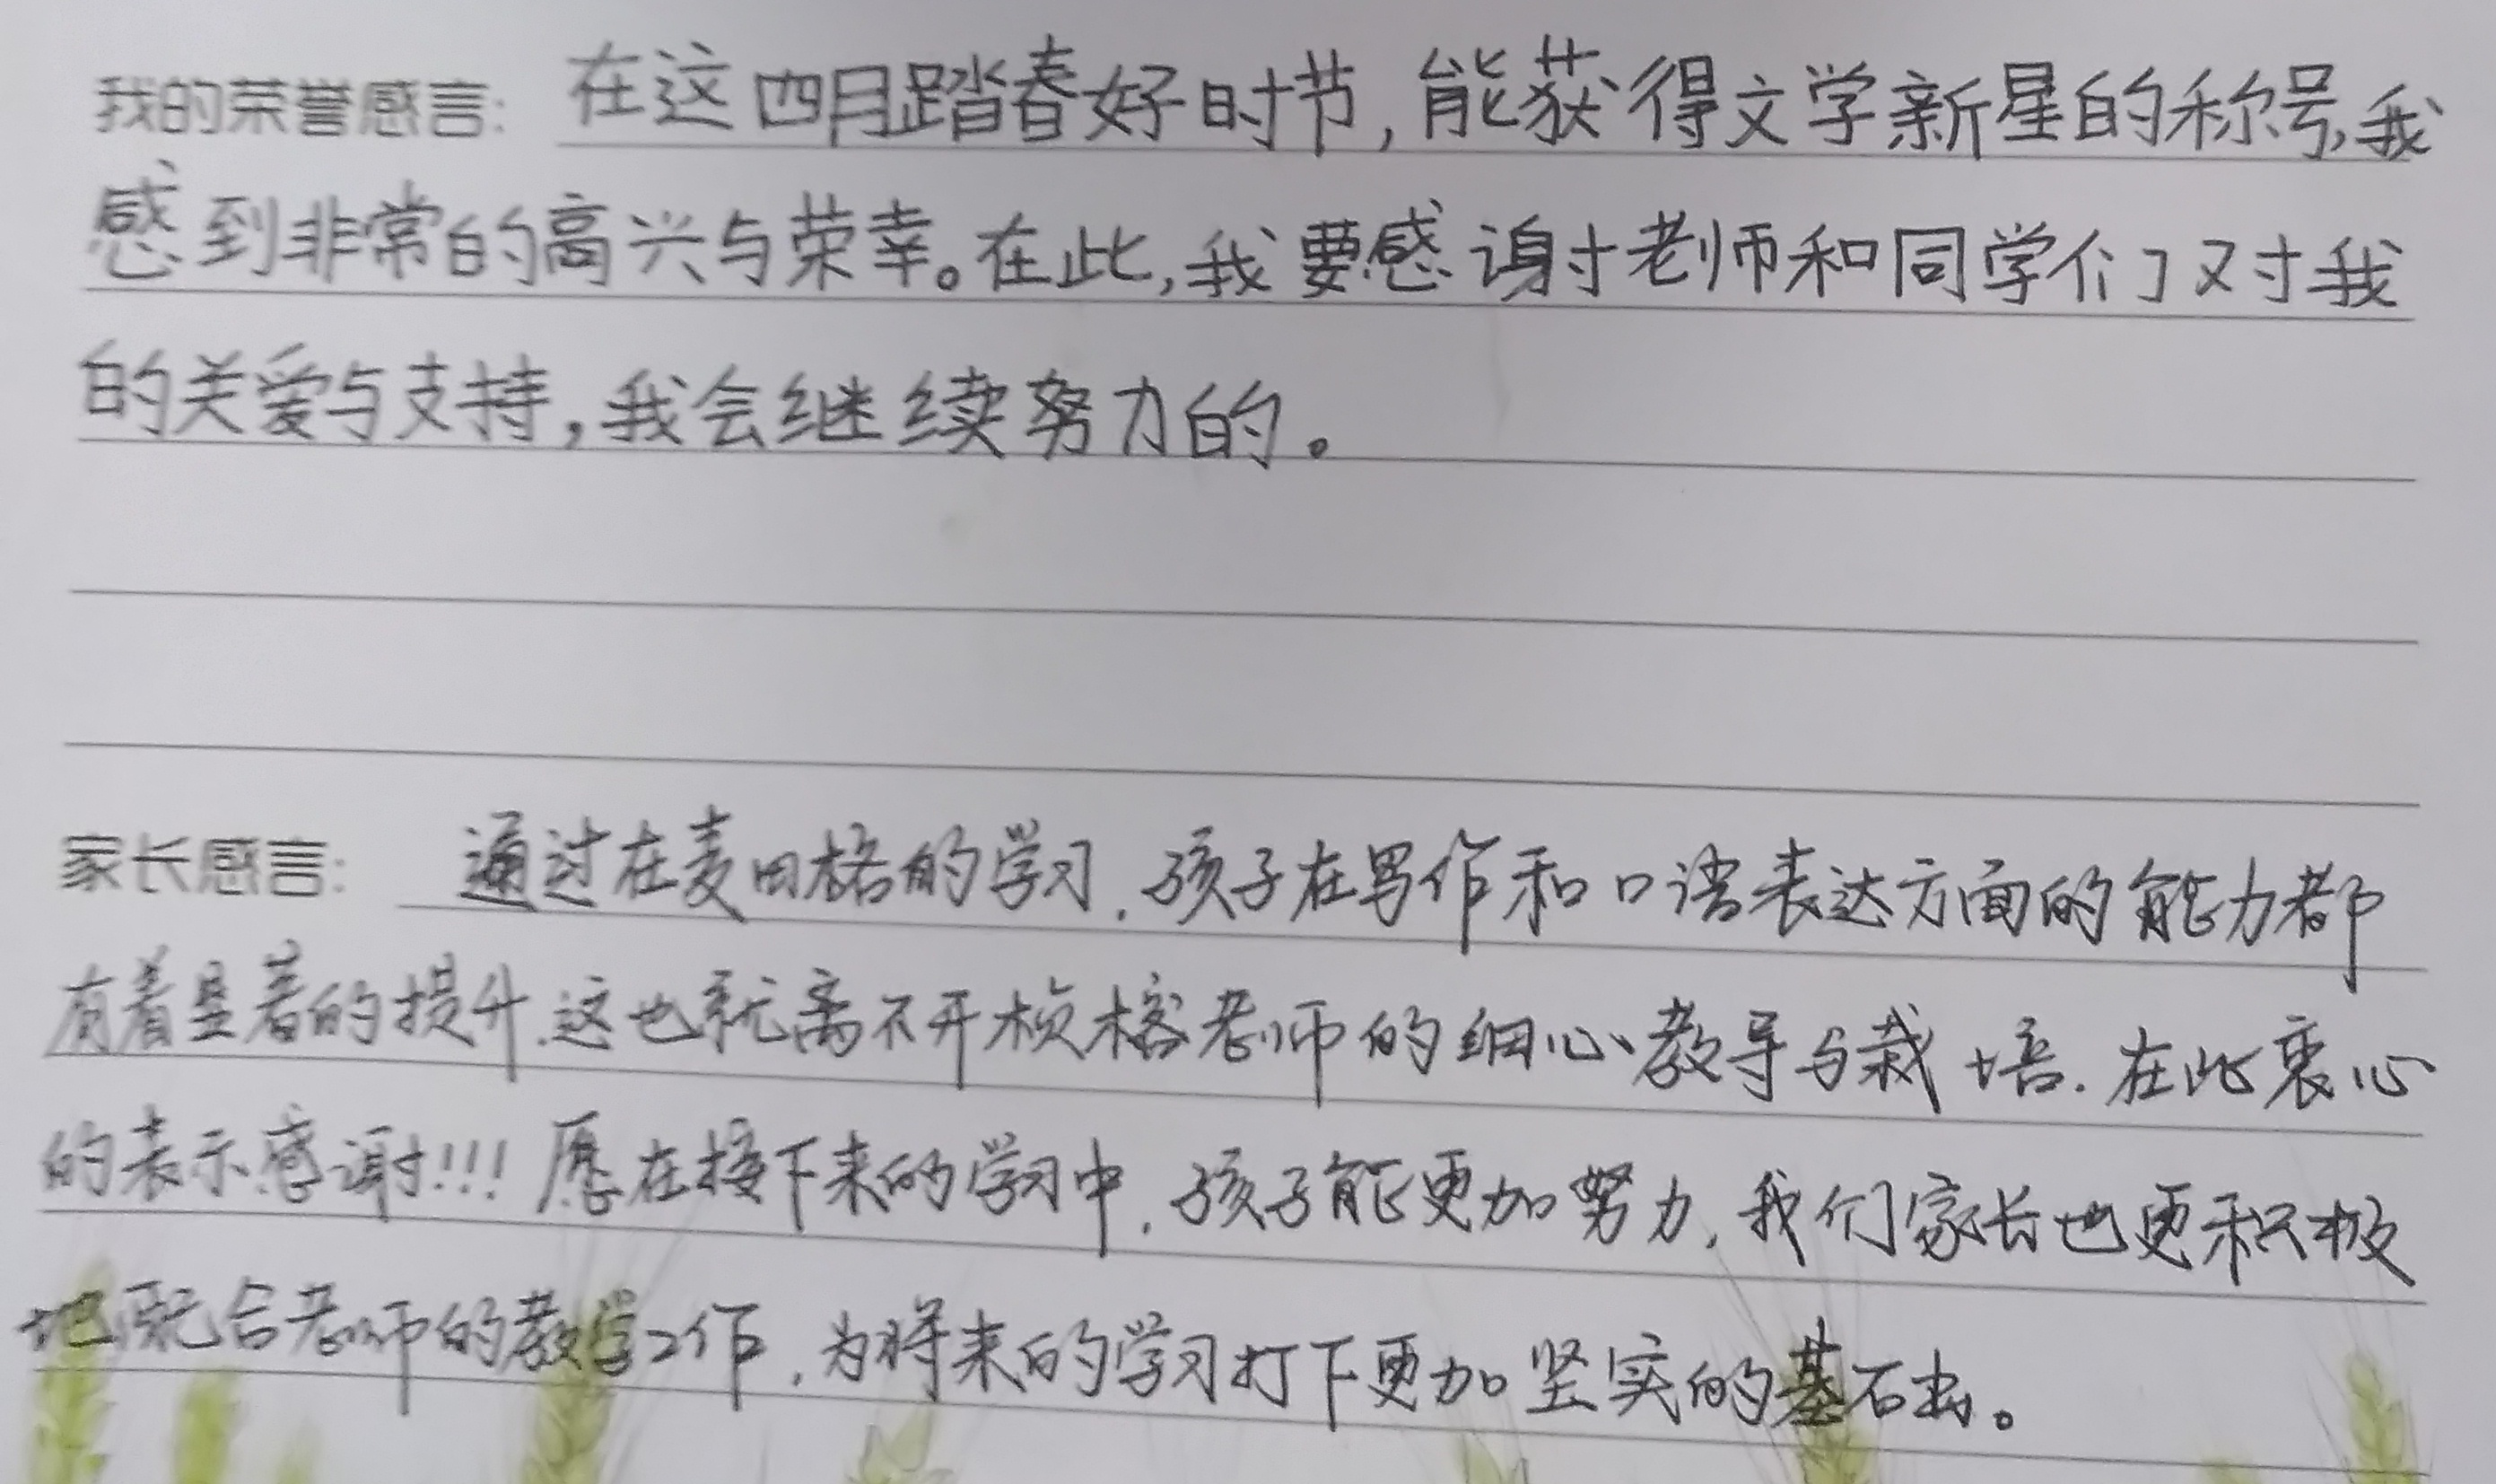 我的荣誉感言: 在这四月踏春好时节,能获得文学新星的称号,我
感到非常的高兴与荣幸。在此,我要感谢老师和同学们对我
的关爱与支持,我会继续努力的。
家长感言: 通过在麦田格的学习,孩子在写作和口语表达方面的能力都
有着显著的提升.这也就离不开桢榕老师的细心教导与栽培.在此衷心
的表示感谢!!!愿在接下来的学习中,孩子能更加努力,我们家长也更积极
地配合老师的教学工作,为将来的学习打下更加坚实的基础。